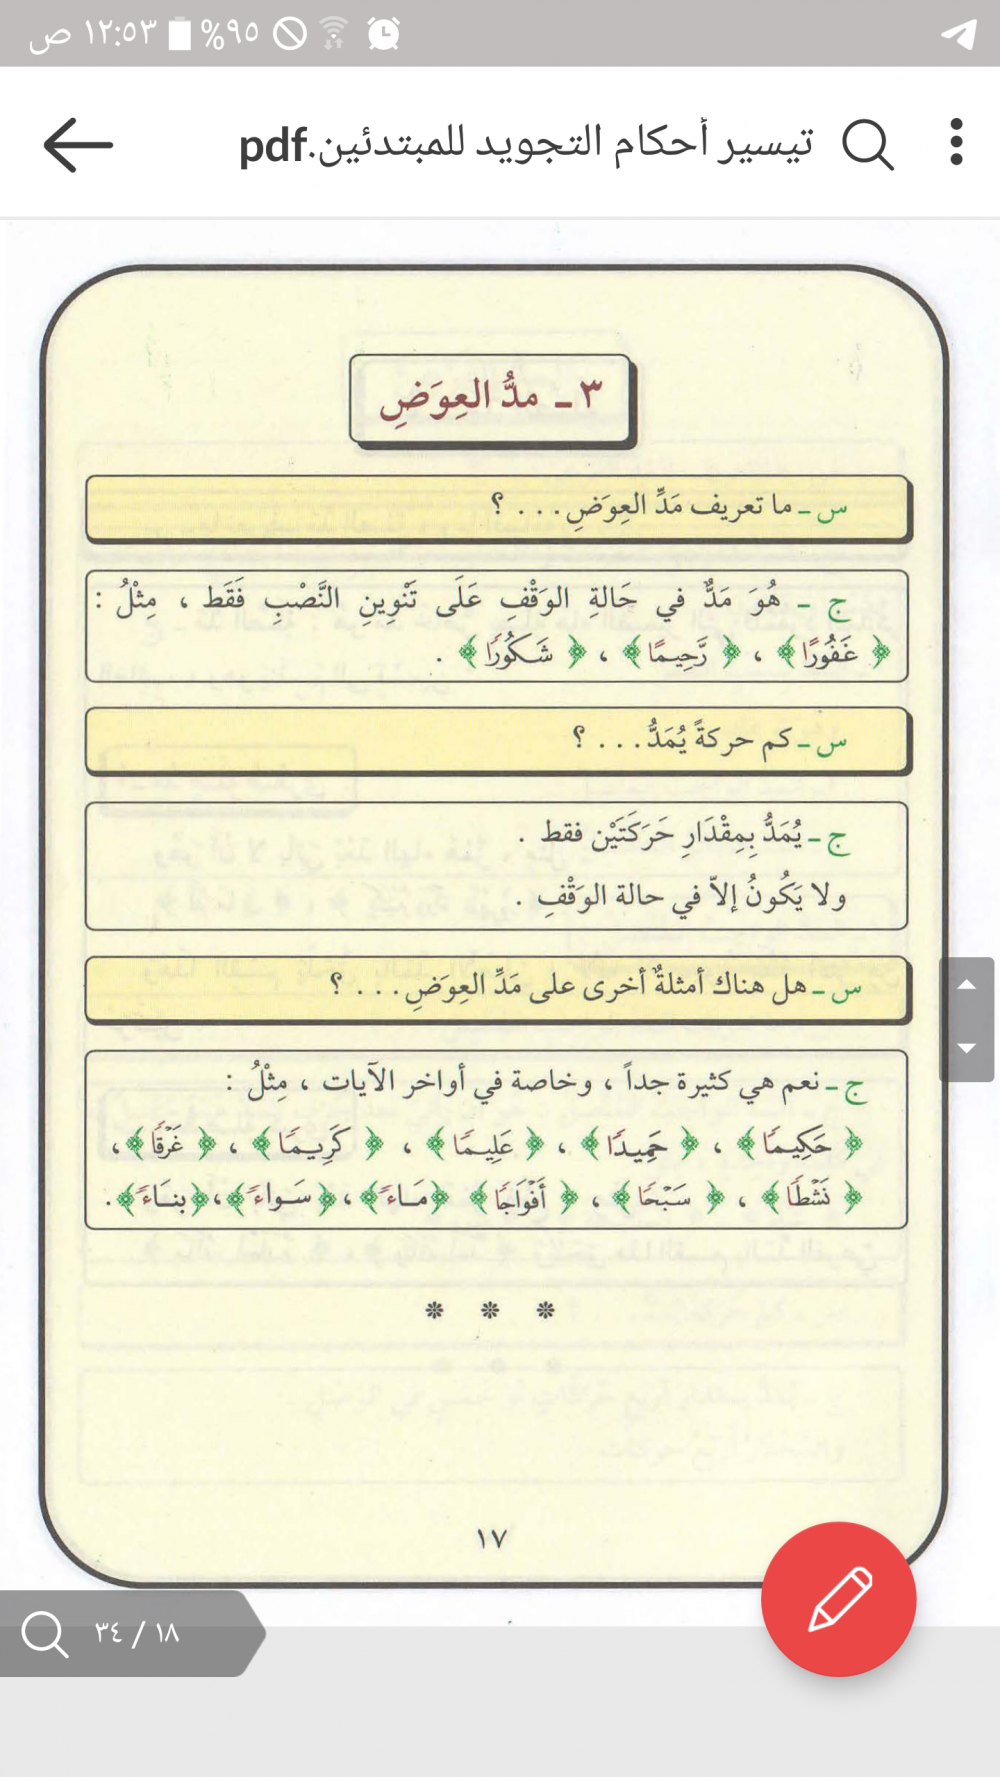 ١٢:٥٣ ص %٩٥
تيسير أحكام التجويد للمبتدئين.pdf
٣ ـ مدُّ العِوَضِ
س ـ ما تعريف مَدِّ العِوَضِ . . . ؟
ج ـ هُوَ مَدٌّ في حَالةِ الوَقْف عَلَى تَنْوِينِ النَّصْبِ فَقَط ، مِثْلُ :
﴿ غَفُورًا ﴾ ، ﴿ رَّحِيمًا ﴾ ، ﴿ شَكُورًا ﴾ .
س ـ كم حركةً يُمَدُّ . . . ؟
ج ـ يُمَدُّ بِمِقْدَارِ حَرَكَتَيْن فقط .
ولا يَكُونُ إلاّ في حالة الوَقْفِ .
س ـ هل هناك أمثلةٌ أخرى على مَدِّ العِوَضِ . . . ؟
ج ـ نعم هي كثيرة جداً ، وخاصة في أواخر الآيات ، مِثْلُ :
﴿ حَكِيمًا ﴾ ، ﴿ حَمِيدًا ﴾ ، ﴿ عَلِيمًا ﴾ ، ﴿ كَرِيمًا ﴾ ، ﴿ غَرْقًا ﴾ ،
﴿ نَشْطًا ﴾ ، ﴿ سَبْحًا ﴾ ، ﴿ أَفْوَاجًا ﴾ ﴿ مَاءً ﴾ ، ﴿ سَواءً ﴾ ، ﴿ بنَاءً ﴾ .
١٧
١٨ / ٣٤